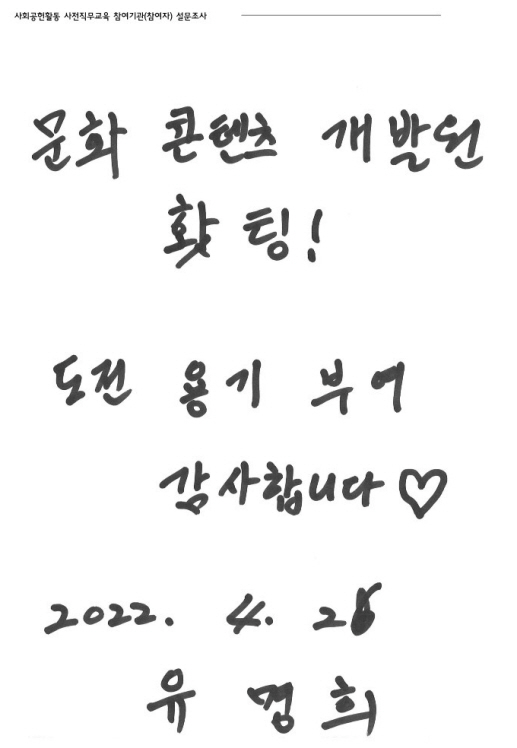 사회공헌활동 사전직무교육 참여기관(참여자) 설문조사
문화 콘텐츠 개발원
홧팅!
도전 용기 부여
감사합니다♡
2022. 4. 28
유명희